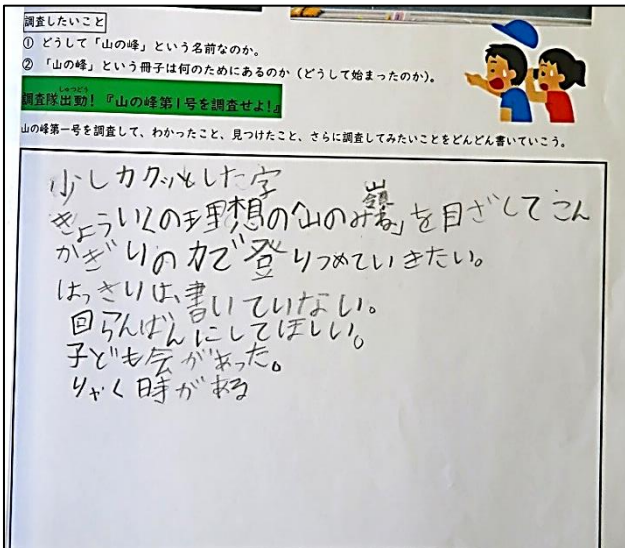 調査したいこと
① どうして「山の峰」という名前なのか。
② 「山の峰」という冊子は何のためにあるのか（どうして始まったのか）。
しゅつどう
調査隊出動！『山の峰第1号を調査せよ！』
山の峰第一号を調査して、わかったこと、見つけたこと、さらに調査してみたいことをどんどん書いていこう。
少しカクッとした字
嶺
きょういくの理想の「山のみね」を目ざしてこん
かぎりの力で登りつめていきたい。
はっきりは、書いていない。
回らんばんにしてほしい。
子ども会があった。
りゃく時がある